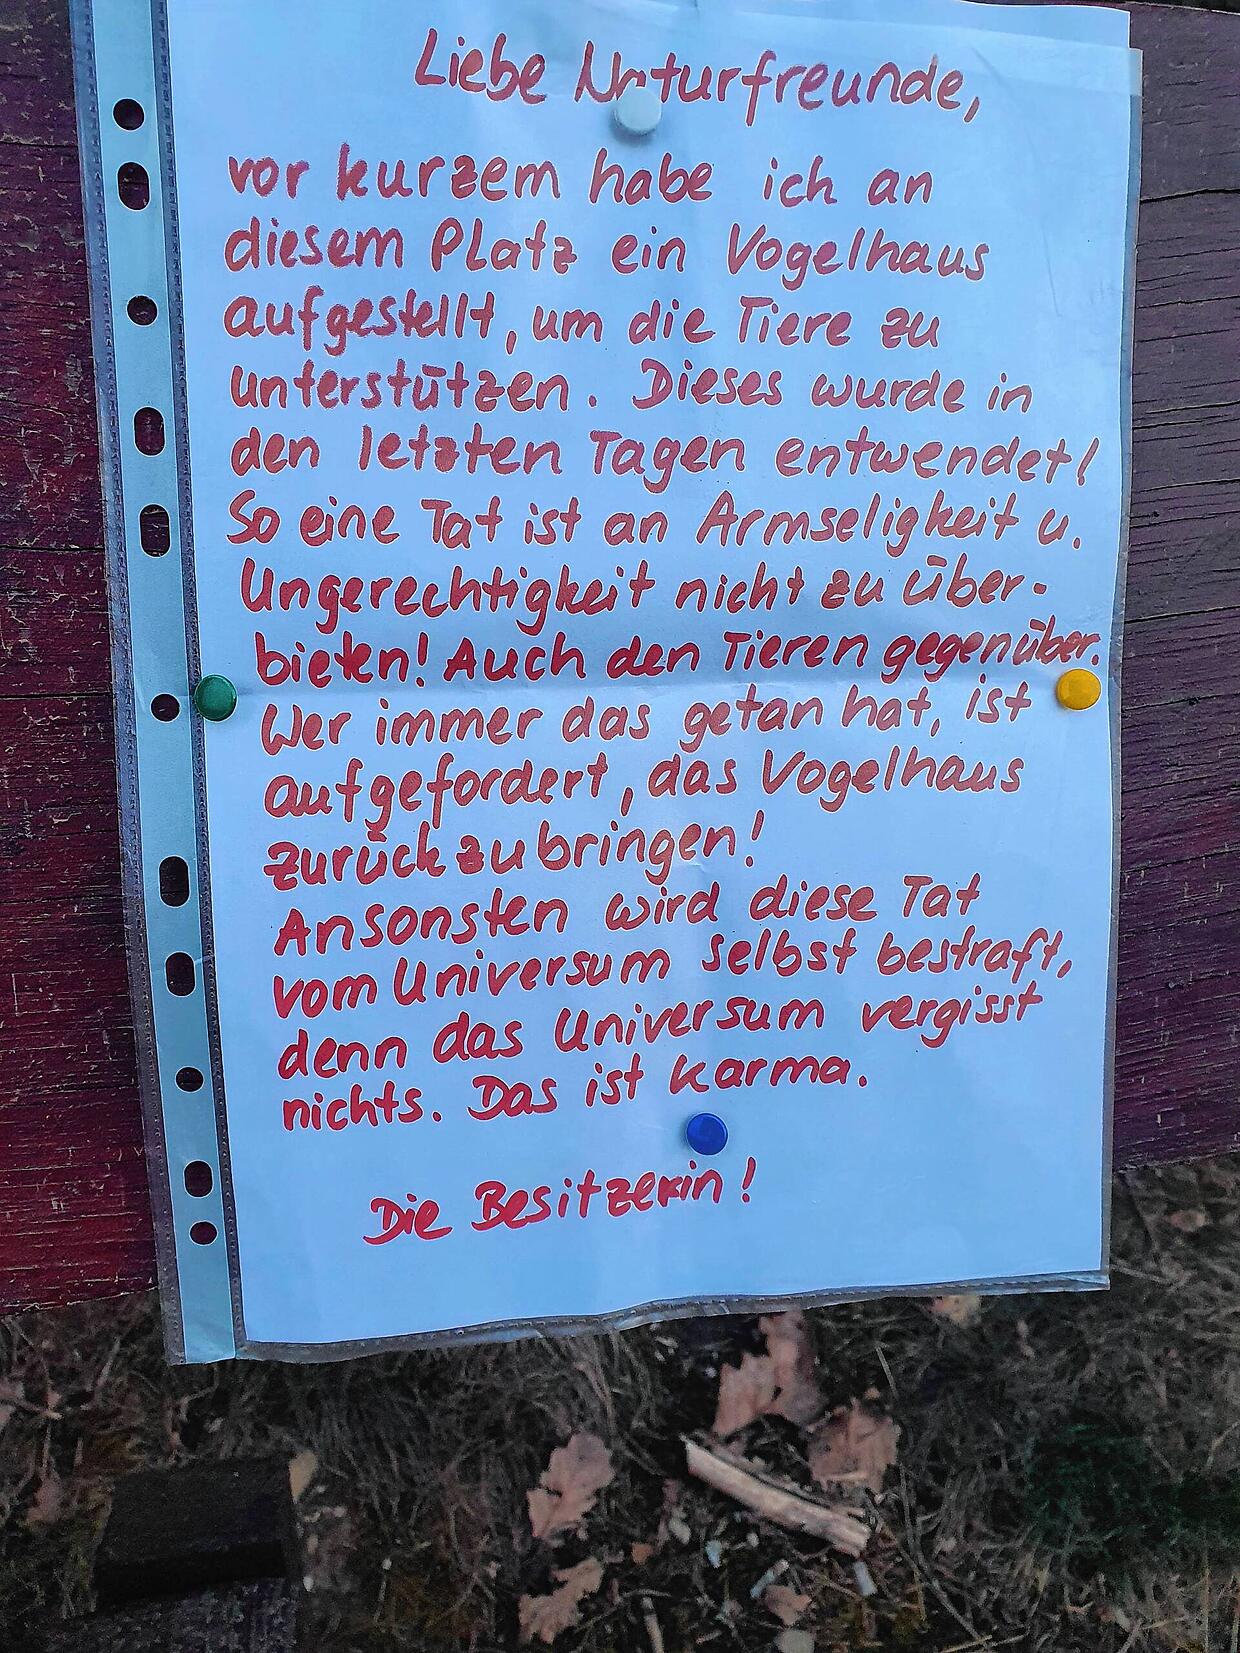 Liebe Naturfreunde,
vor kurzem habe ich an
diesem Platz ein Vogelhaus
aufgestellt, um die Tiere zu
unterstützen. Dieses wurde in
den letzten Tagen entwendet!
So eine Tat ist an Armseligkeit u.
Ungerechtigkeit nicht zu über-
bieten! Auch den Tieren gegenüber.
Wer immer das getan hat, ist
aufgefordert, das Vogelhaus
zurückzubringen!
Ansonsten wird diese Tat
vom Universum selbst bestraft,
denn das Universum vergisst
nichts. Das ist Karma.
Die Besitzerin!